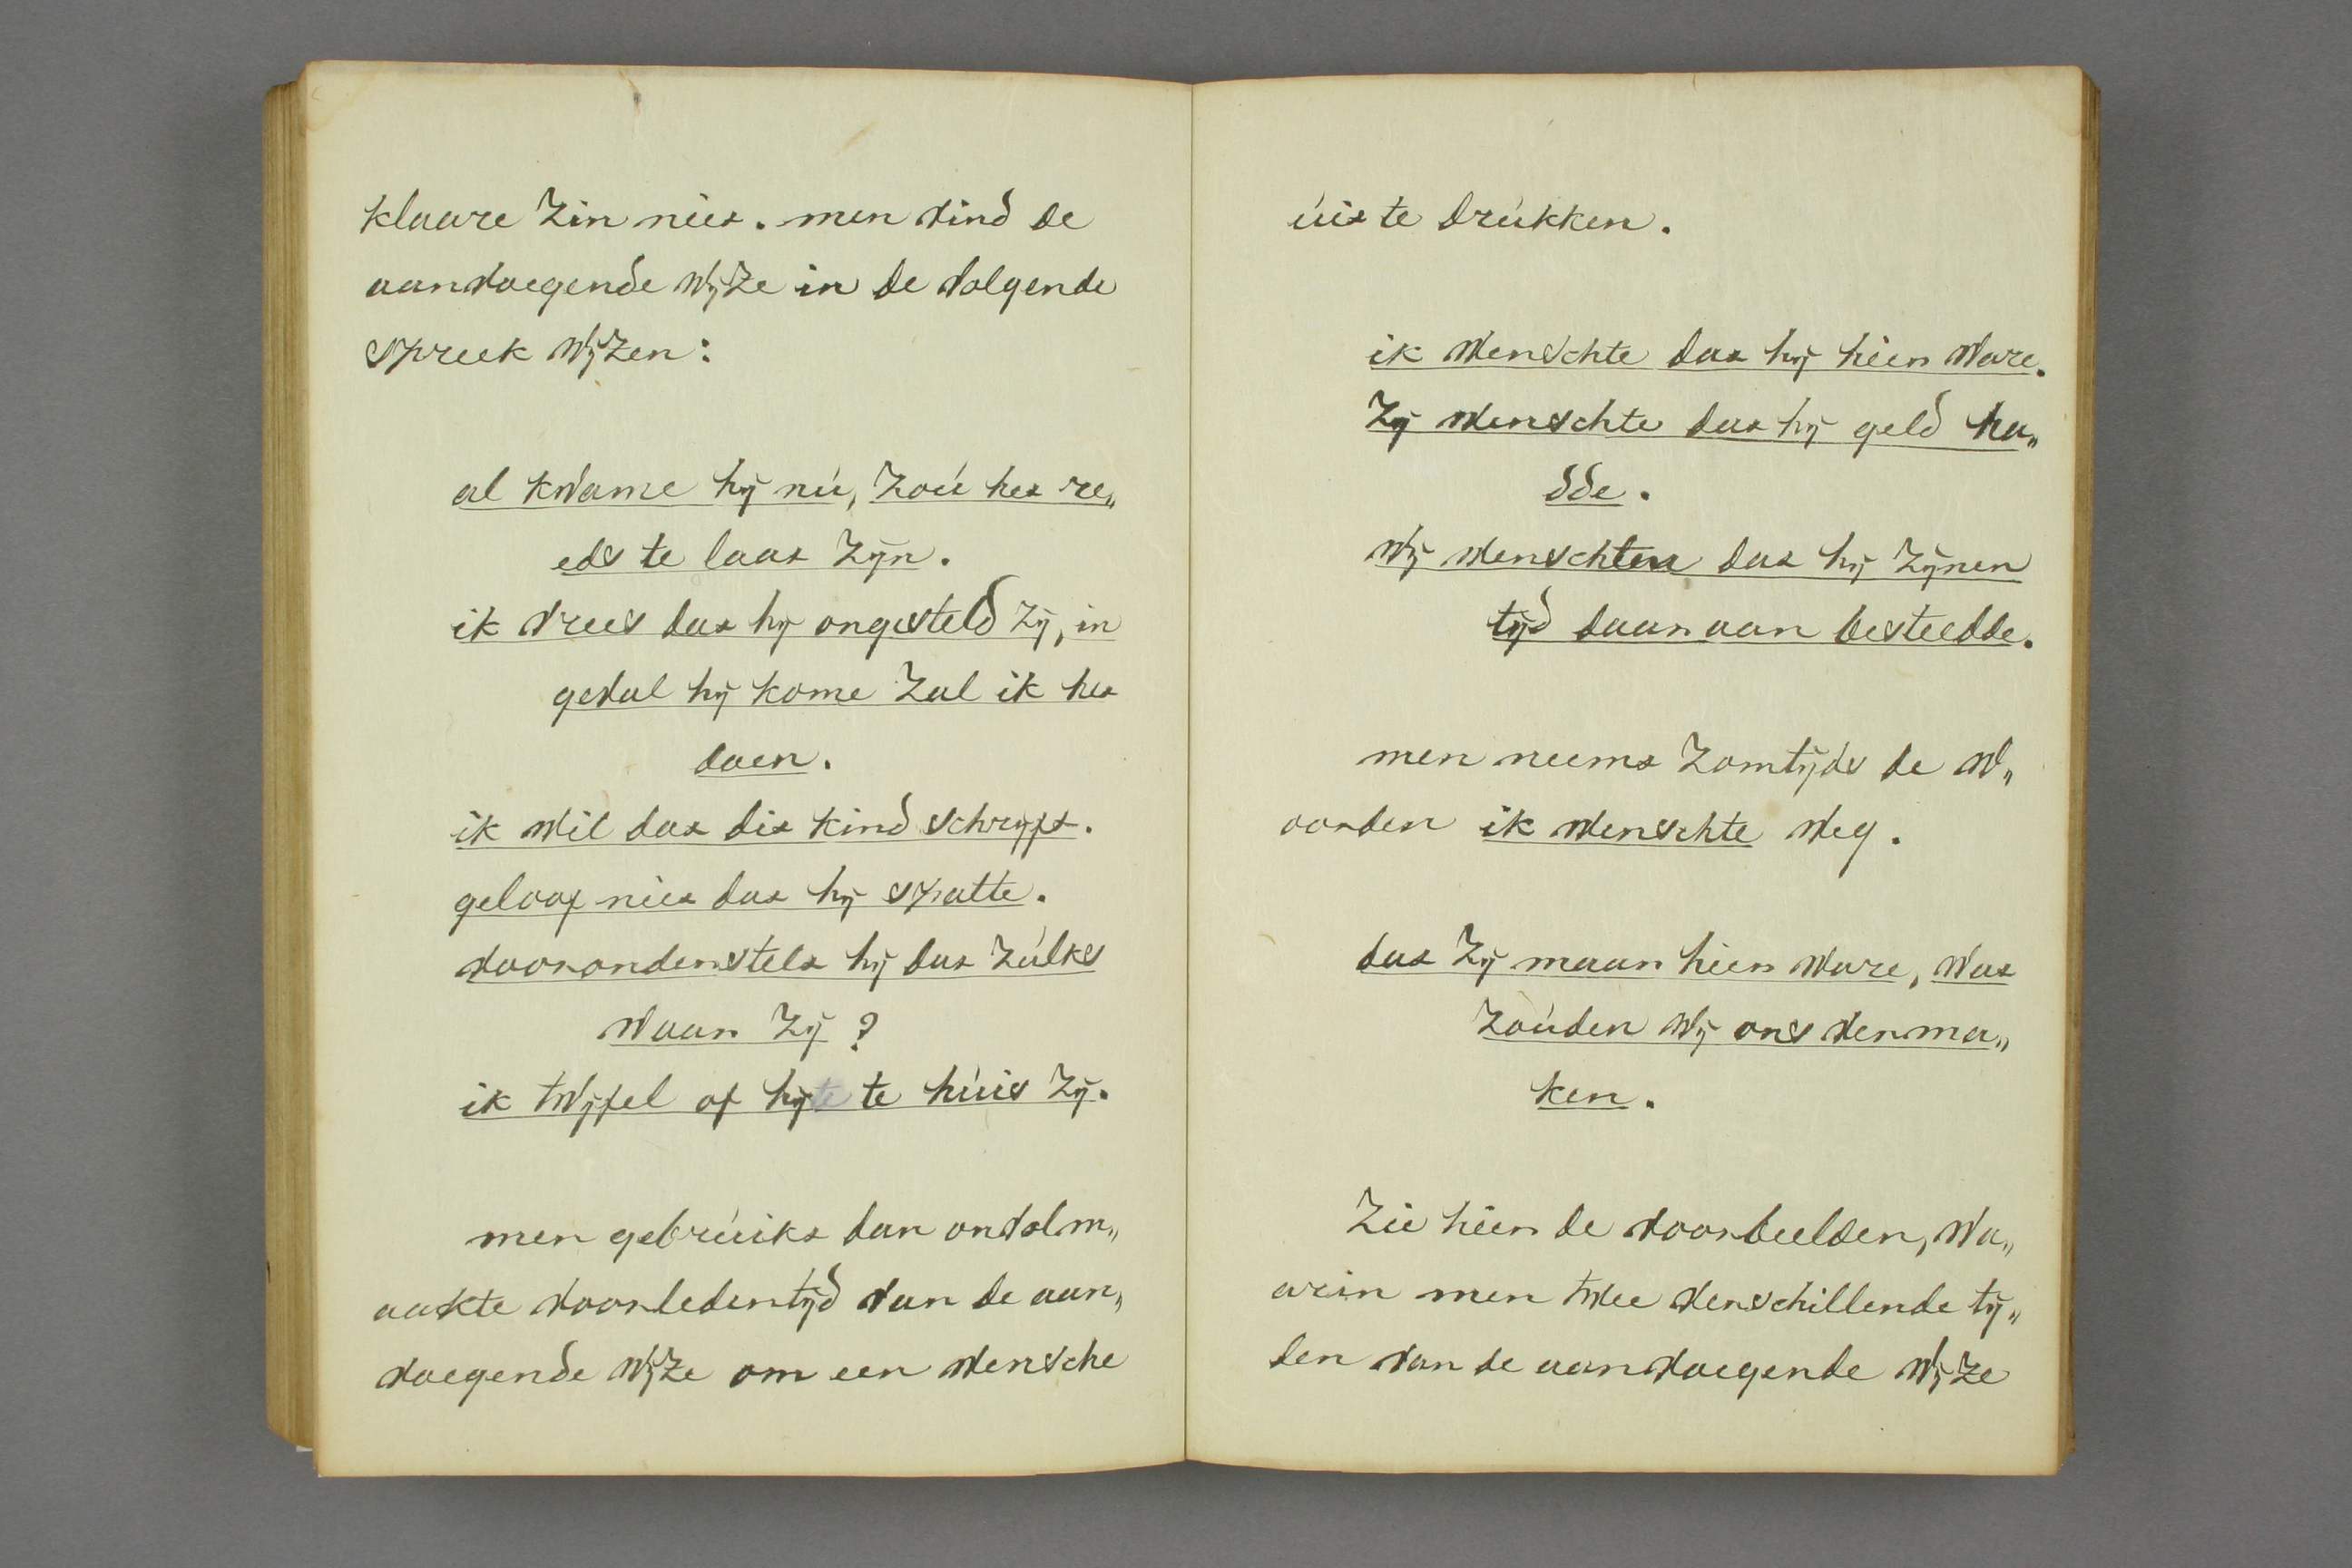 klaare zin niet. men vind de
aanvoegende wyze in de volgende
spreek wyzen:
al kwame hy nú, zoú het re„
eds te laat zyn.
ik vrees dat hy ongesteld zy, in
geval hy kome zal ik het
doen.
ik wil dat dit kind schryft.
geloof niet dat hy spotte.
vooronderstelt hy dat zúlks
waar zy?
ik twyfel of hy te te húis zy.
men gebrúikt dan onvolm„
aakte voorledentyd van de aan„
voegende wyze om een wensche
úit te drúkken.
ik wenschte dat hy hier ware.
zy wenschte dat hy geld ha„
dde.
wy wenschten dat hy zynen
tyd daar aan besteedde.
men neemt zomtyds de w„
oorden ik wenschte weg.
dat zy maar hier ware, wat
zoúden wy ons verma„
ken.
zie hier de voorbeelden, wa„
arin men twee verschillende ty„
den van de aanvoegende wyze